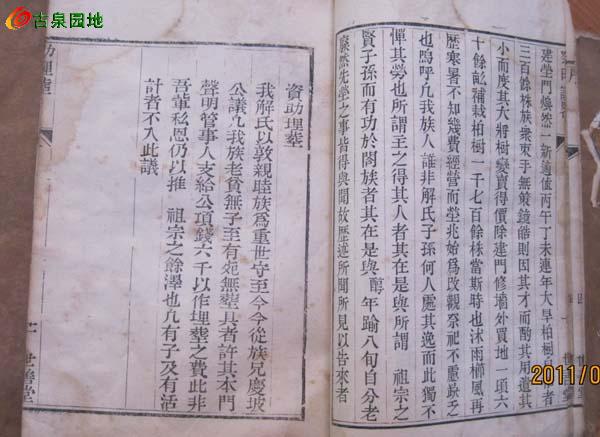 古泉园地
建塋門煥然一新適值丙午丁未連年大旱柏樹
三百餘株族衆束手無策鏡皓則因其才而酌其用道其
小而度其大將樹變賣得價除建門修墻外買地一項六
十餘畝補栽柏樹一千七百餘株當斯時也沐雨櫛風再
歷寒暑不知幾費經營而塋兆始爲改觀祭祀不憂缺乏
也嗚呼凡我族人誰非解氏子孫何人處其逸而此獨不
憚其勞也所謂主之得其人者其在是與所謂 祖宗之
賢子孫而有功於閤族者其在是與 醇年踰八旬自分老
廢然先塋之事皆得與聞故歷述所聞所見以告來者
資助理塟
我解氏以敦親睦族爲重世守至今今從族兄慶坡
公議凡我族老貧無子至有死無塟具者許其本門
聲明管事人支給公項錢六千以作埋塟之費此非
吾輩私恩仍以推 祖宗之餘澤也凡有子及有活
計者不入此議
助理塟
世譱堂
2011/0